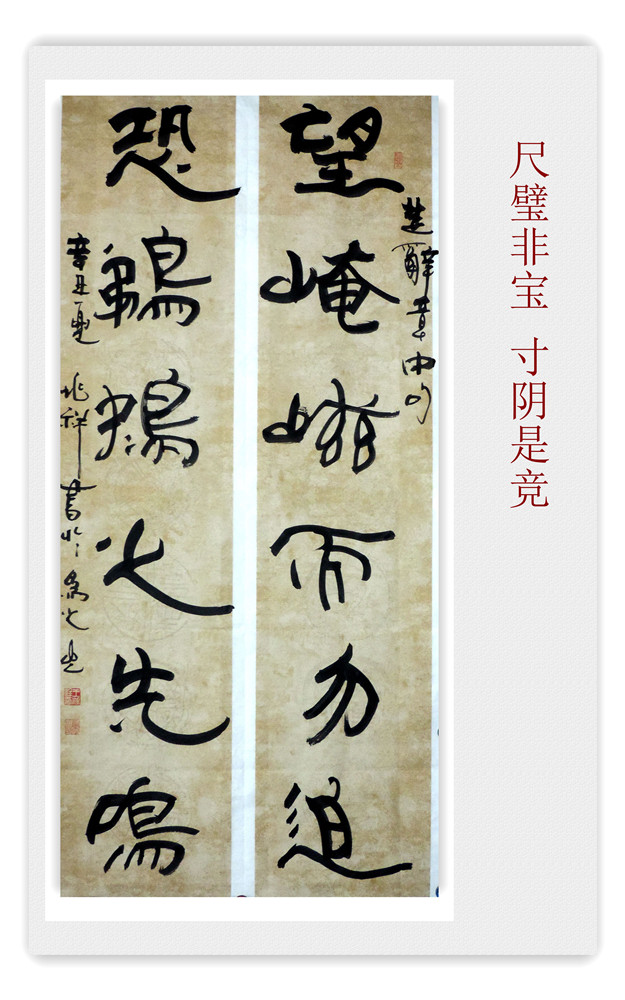 尺璧非宝 寸阴是竞
楚辭章中句
望崦嵫而勿迫
恐鵜鴂之先鳴
辛丑夏 兆祥書於